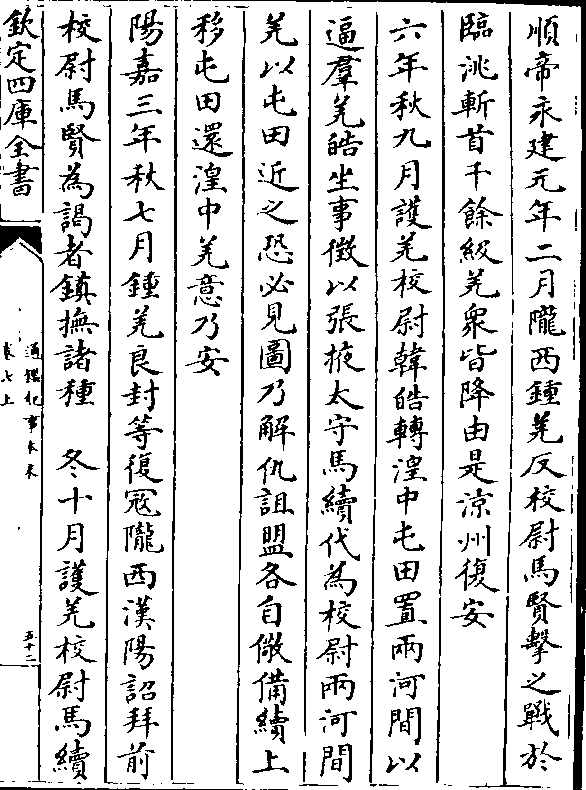 順帝永建元年二月隴西鍾羌反校尉馬賢擊之戰於
臨洮斬首千餘級羌衆皆降由是涼州復安
六年秋九月護羌校尉韓皓轉湟中屯田置兩河間以
逼羣羌皓坐事徵以張掖太守馬續代為校尉兩河間
羌以屯田近之恐必見圖乃解仇詛盟各自儆備續上
移屯田還湟中羌意乃安
陽嘉三年秋七月鍾羌良封等復冦隴西漢陽詔拜前
校尉馬賢為謁者鎮撫諸種　冬十月護羌校尉馬續
欽定四庫全書
通鑑紀事本末
卷七上
五十二